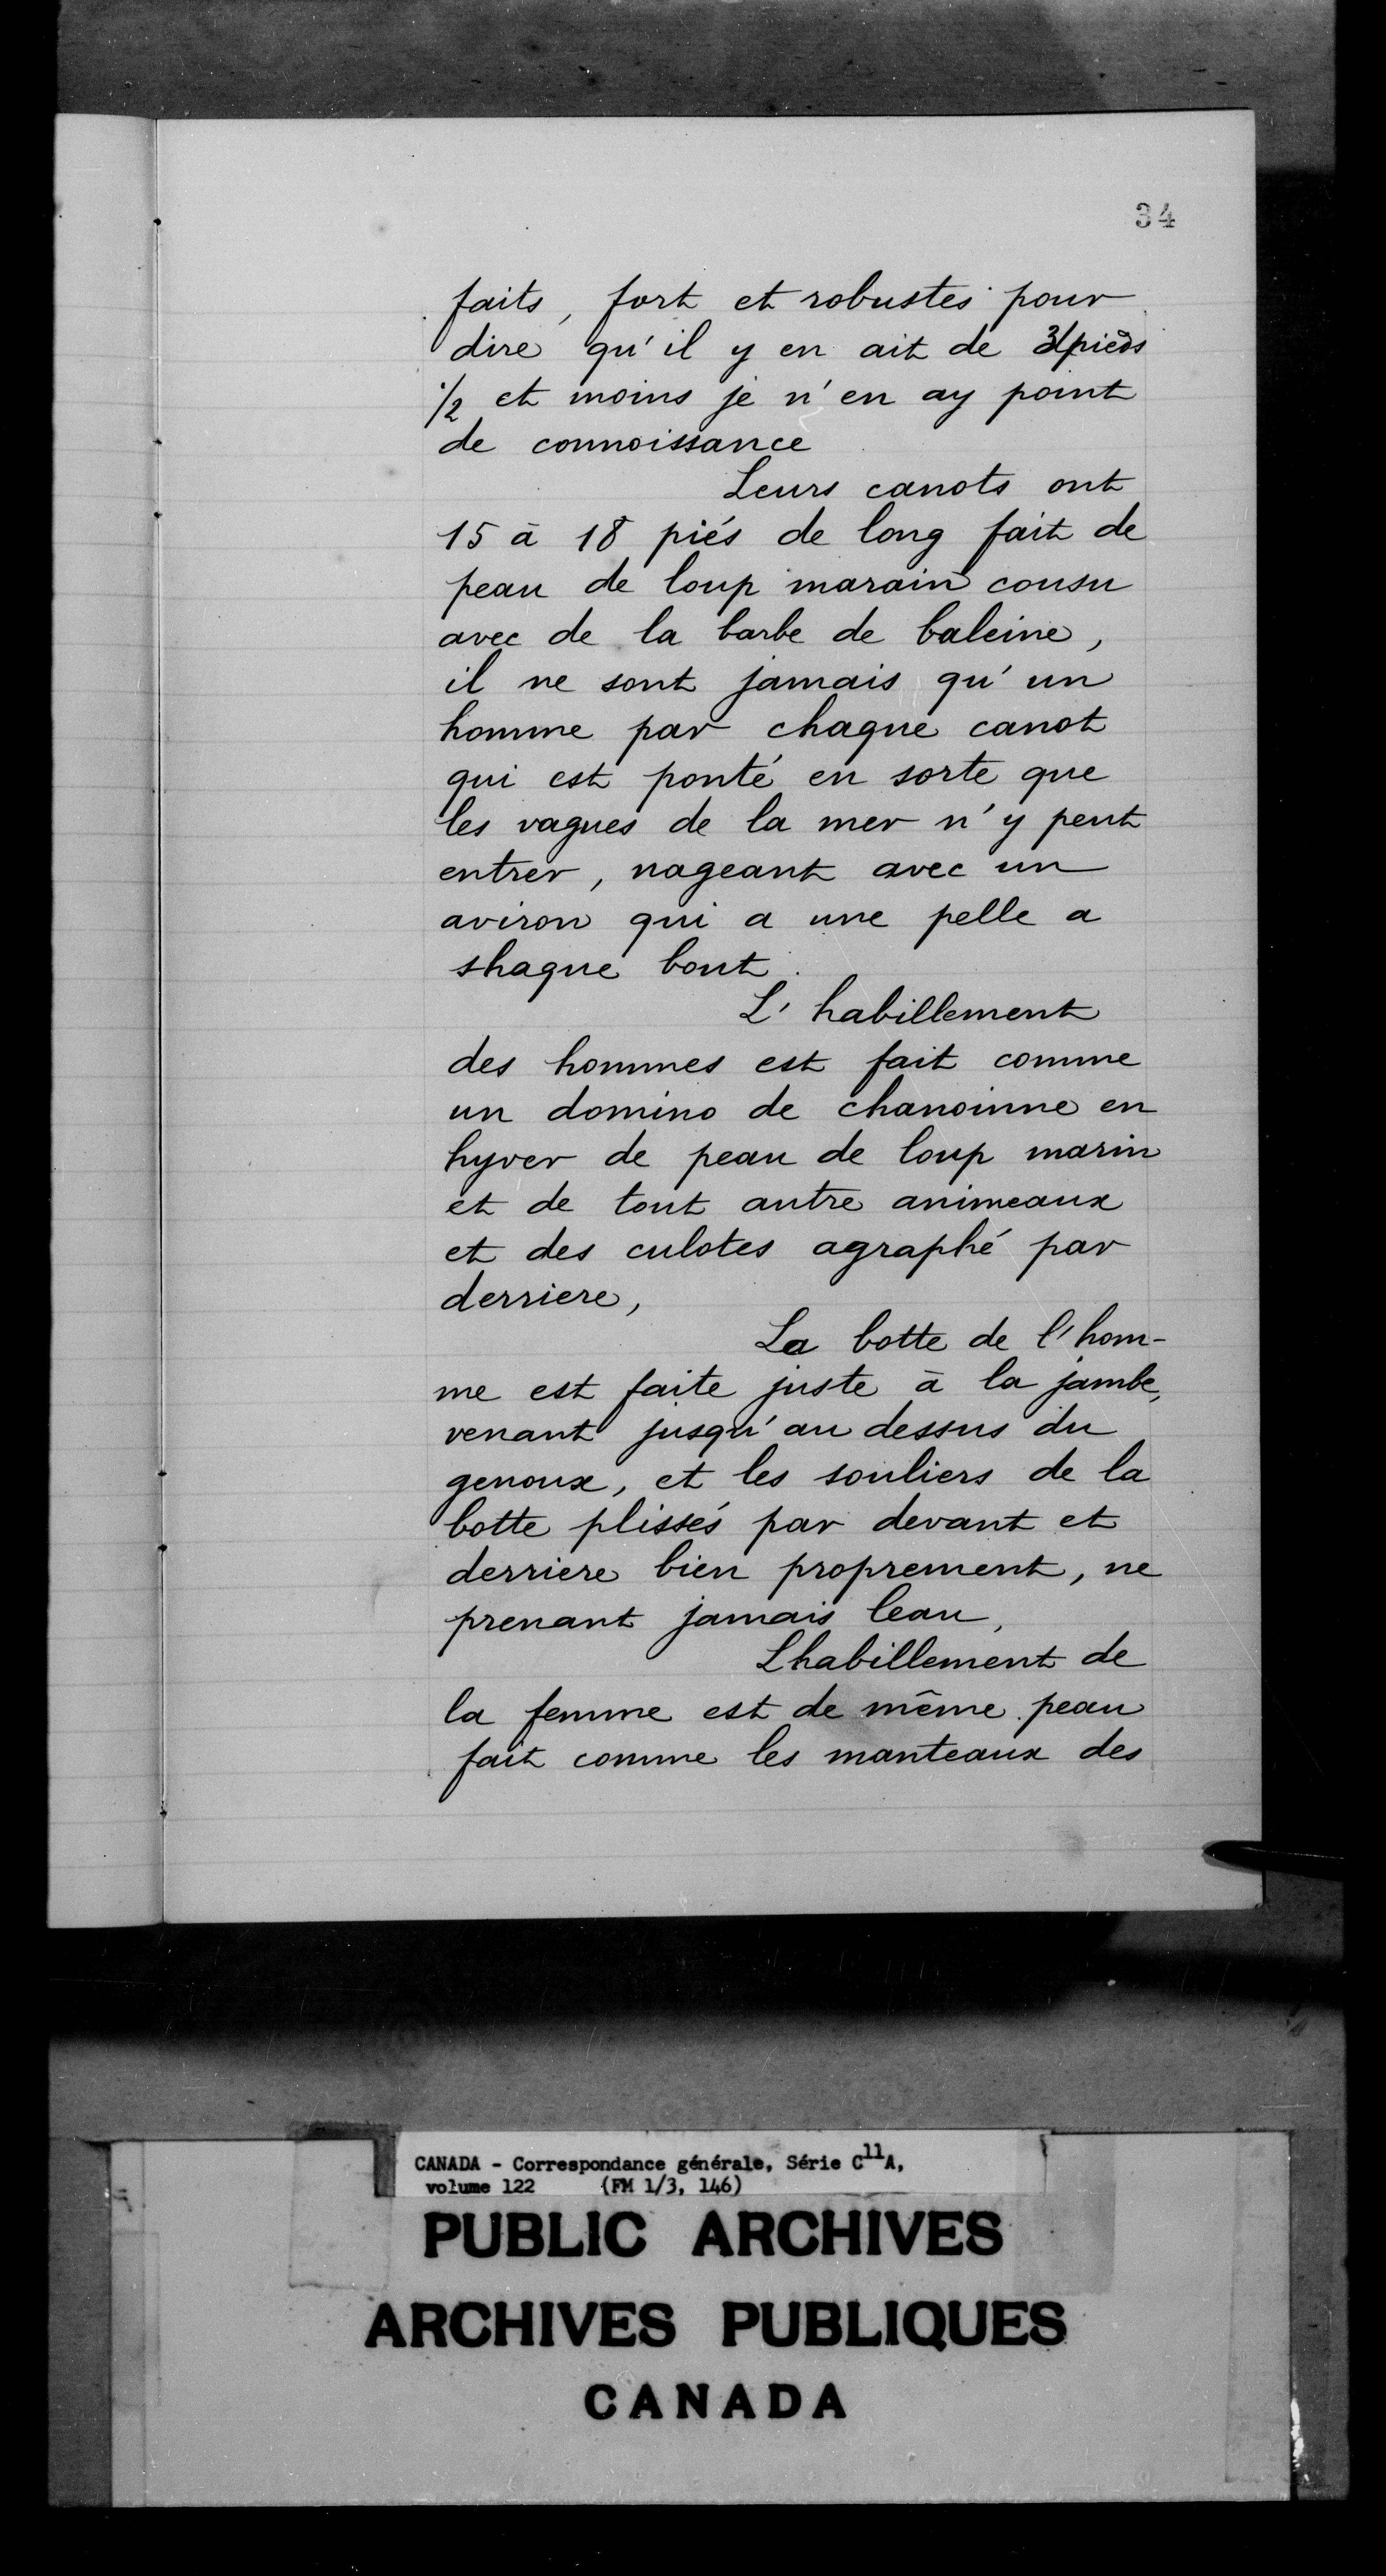 34
faits, fort et robustes pour
dire qu'il y en ait de 3 pieds
1/2 et moins je n'en ay point
de connoissance
Leurs canots ont
15 à 18 piés de long fait de
peau de loup marain cousu
avec de la barbe de baleine,
il ne sont jamais qu'un
homme par chaque canot
qui est ponté en sorte que
les vagues de la mer n'y peut
entrer, nageant avec un
aviron qui a une pelle a
shaque bout.
L'habillement
des hommes est fait comme
un domino de chanoinne en
hyver de peau de loup marin
et de tout autre animeaux
et des culotes agraphé par
derriere,
La botte de l'hom-
me est faite juste à la jambe,
venant jusqu'au dessus du
genoux, et les souliers de la
botte plissés par devant et
derriere bien proprement, ne
prenant jamais leau,
Lhabillement de
la femme est de même peau
fait comme les manteaux des
CANADA - Correspondance générale, Série C11A,
volume 122 (FM 1/3, 146)
PUBLIC ARCHIVES
ARCHIVES PUBLIQUES
CANADA